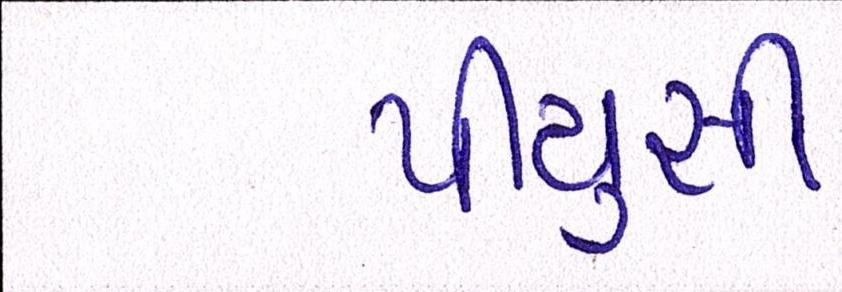 પીયુસી